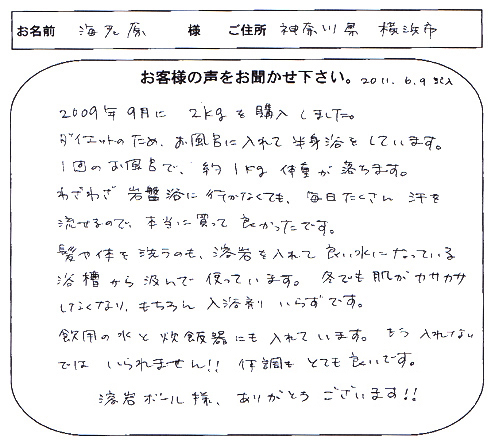 お名前 海老原 様 ご住所 神奈川県 横浜市
お客様の声をお聞かせ下さい。2011.6.9 記入
2009年9月に 2kgを購入しました。
ダイエットのため、お風呂に入れて半身浴をしています。
1回のお風呂で、約1kg 体重が落ちます。
わざわざ 岩盤浴に行かなくても、毎日たくさん 汗を
流せるので、本当に買って良かったです。
髪や体を洗うのも、溶岩を入れて良い水になっている
浴槽から汲んで使っています。冬でも肌がカサカサ
しなくなり、もちろん 入浴剤 いらずです。
飲用の水と炊飯器にも入れています。もう入れない
では いられません!! 体調も とても良いです。
溶岩ボール様、ありがとう ございます!!